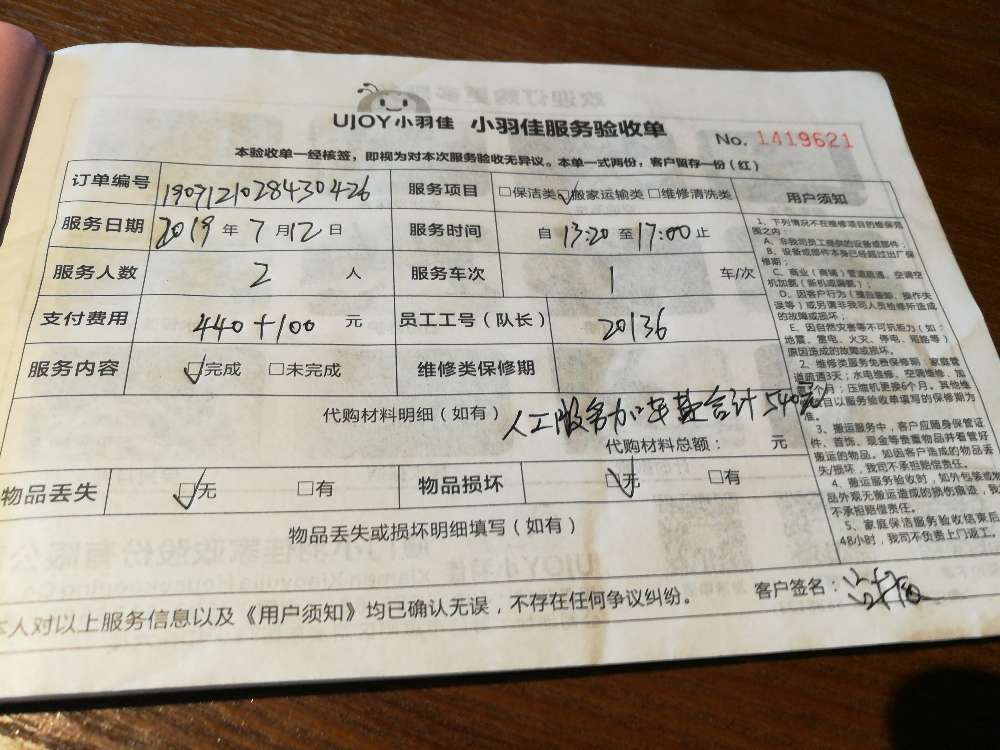 UJOY小羽佳 小羽佳服务验收单
No. 1419621
本验收单一经核签，即视为对本次服务验收无异议。本单一式两份，客户留存一份（红）
订单编号 1907121028430426 服务项目 □保洁类 ☑搬家运输类 □维修清洗类
服务日期 2019 年 7 月 12 日 服务时间 自 13:20 至 17:00 止
服务人数 2 人 服务车次 1 车/次
支付费用 440+100 元 员工工号（队长） 20136
服务内容 ☑完成 □未完成 维修类保修期
代购材料明细（如有） 人工服务加车费合计540元
代购材料总额： 元
物品丢失 ☑无 □有 物品损坏 ☑无 □有
物品丢失或损坏明细填写（如有）
本人对以上服务信息以及《用户须知》均已确认无误，不存在任何争议纠纷。 客户签名：
用户须知
1、下列情况不在维修项目的维保范
围之内：
A、非我司员工提供的设备或部件；
B、设备或部件本身已经超过出厂保
修期；
C、商业（商铺）管道疏通、空调空
机加氨（新机或漏氨）；
D、因客户行为（擅自修卸、操作失
误等）或另请非我司人员检修所造成
的故障或损坏；
E、因自然灾害等不可抗拒力（如：
地震、雷电、火灾、停电、短路等）
原因造成的故障或损坏。
2、维修类服务免费保修期：家庭管
道疏通3天；水电维修、空调维修、加
月；压缩机更换6个月。其他维
目以服务验收单填写的保修期为
准。
3、搬运服务中，客户应随身保管证
件、首饰、现金等贵重物品并看管好
搬运的物品。如因客户造成的物品丢
失/损坏，我司不承担赔偿责任。
4、搬运服务验收时，如外包装或物
品外观无搬运造成的损伤痕迹，我
不承担赔偿责任。
5、家庭保洁服务验收结束后
48小时，我司不负责上门返工。